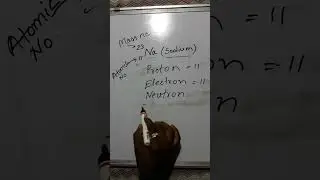 Mass no
23
Na (Sodium)
11
Atomic No
Atomic No
Proton = 11
Electron = 11
Neutron
= 11
= 11